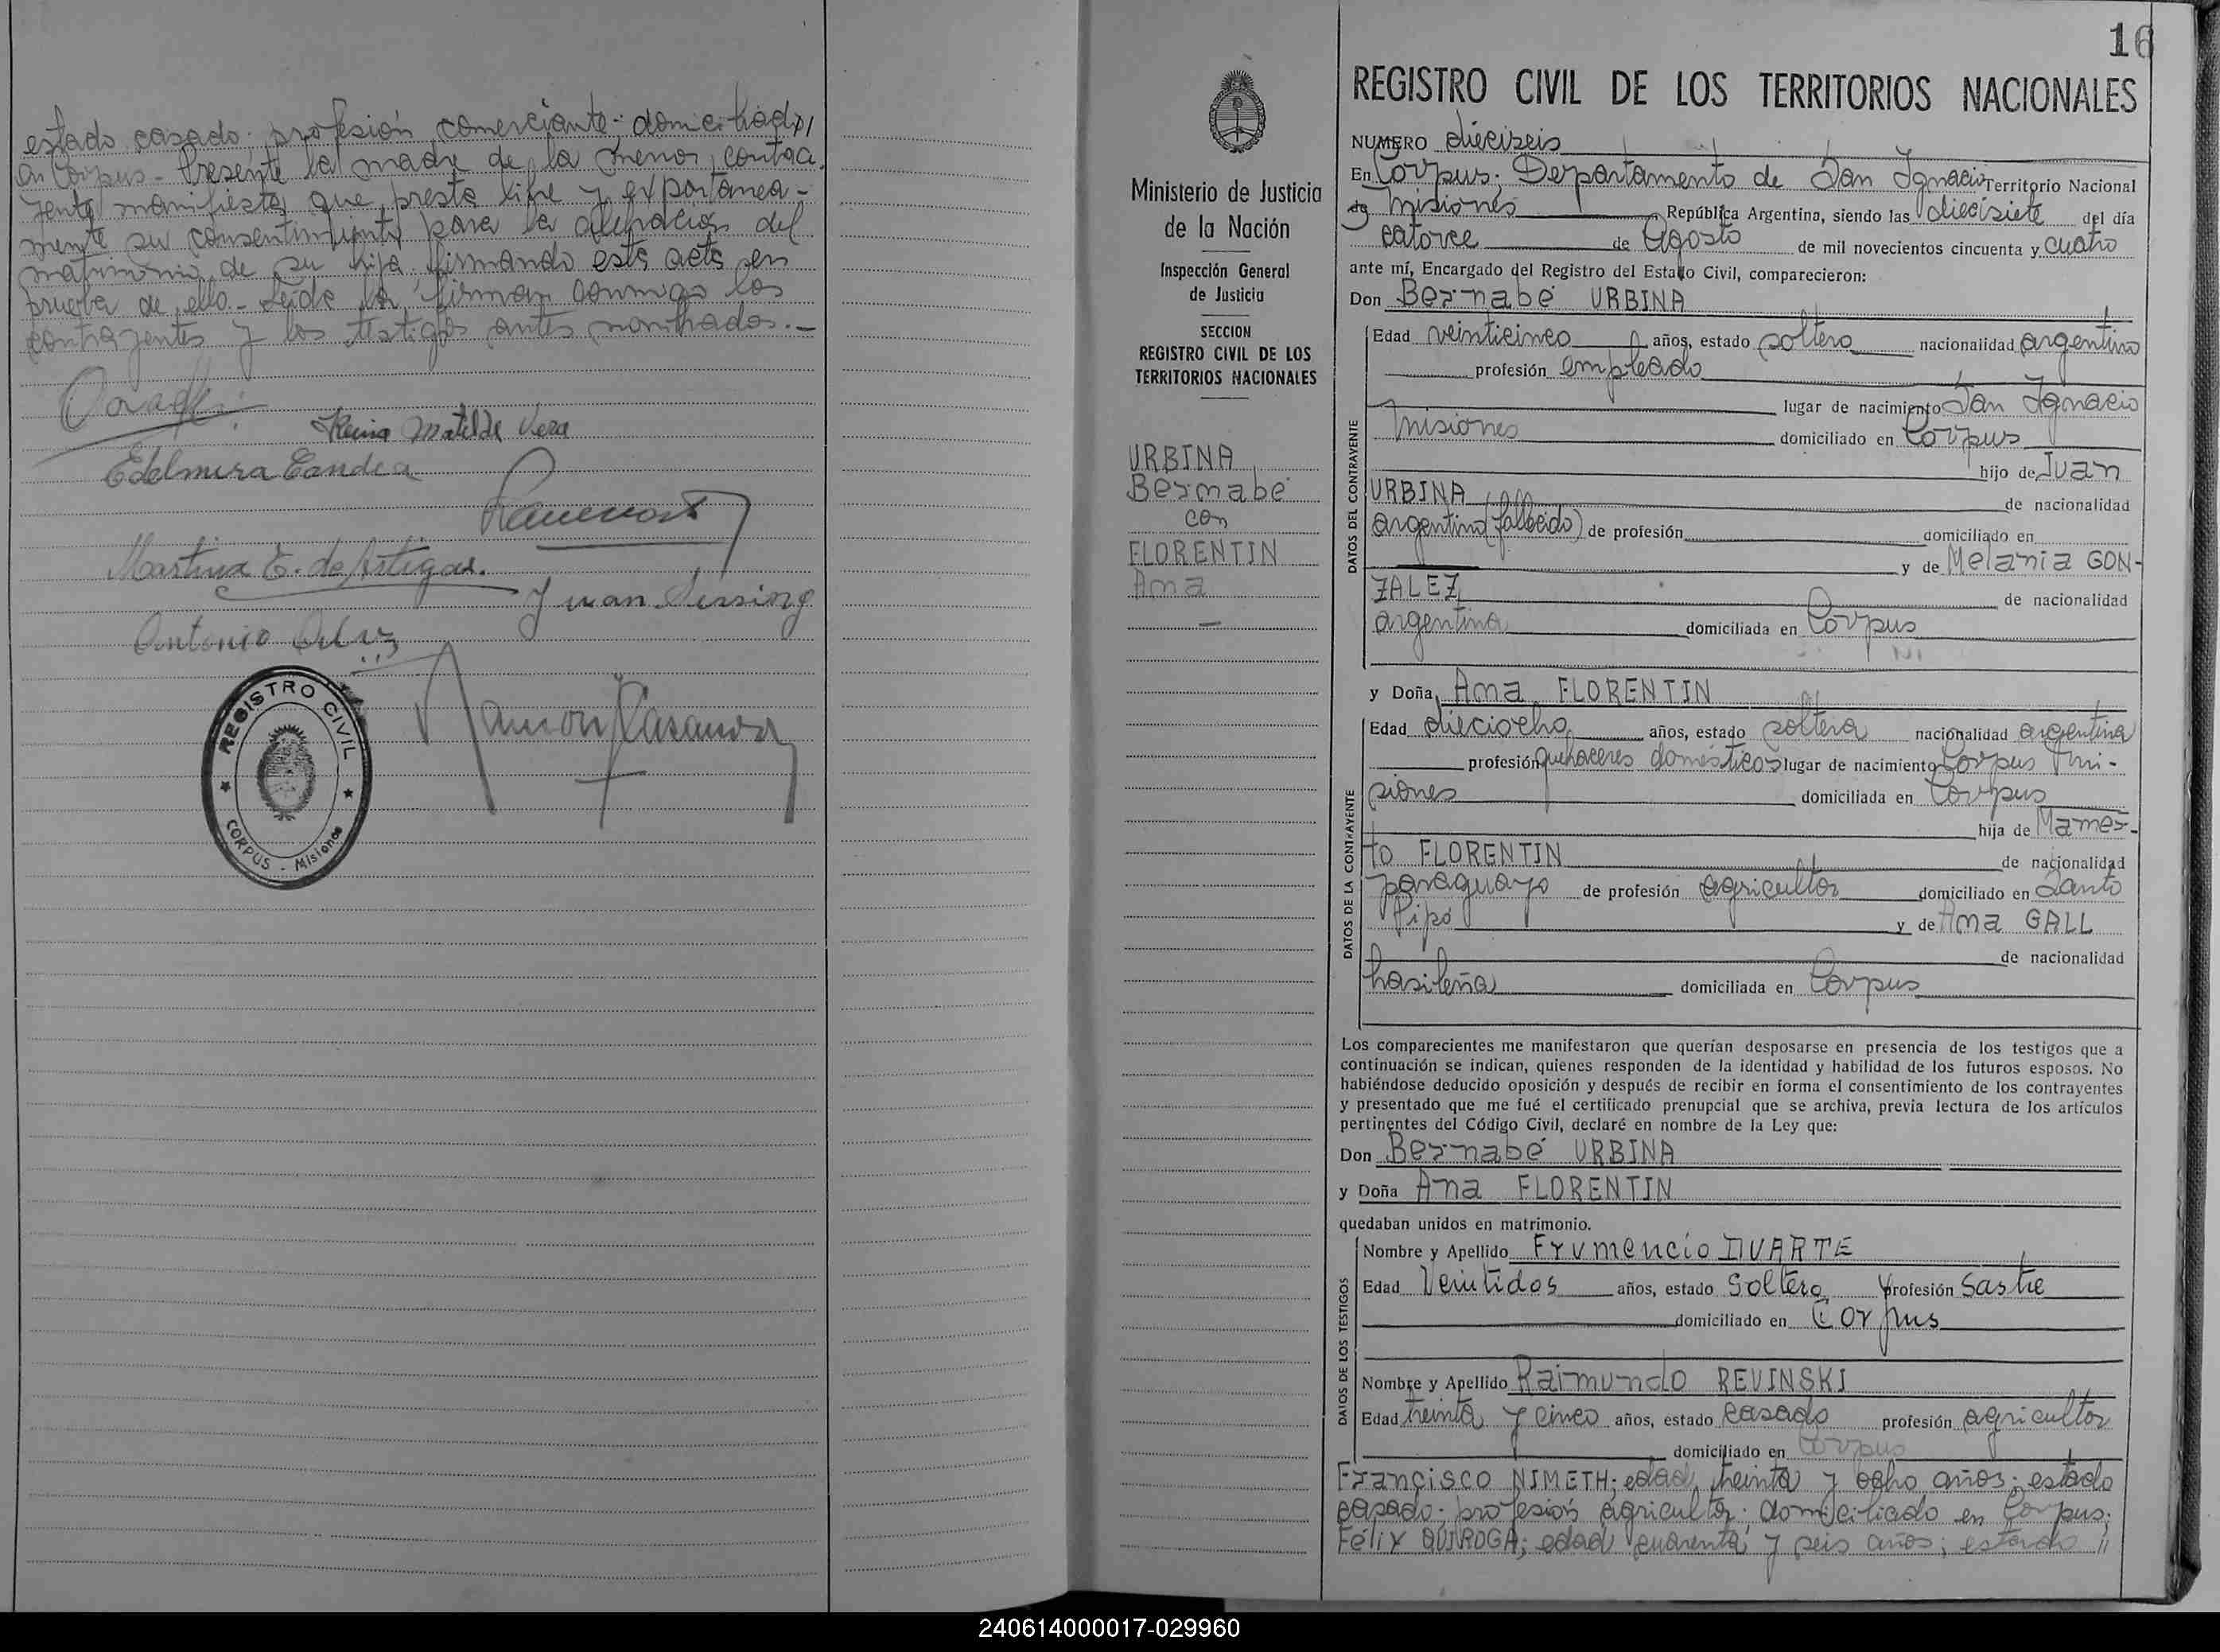 estado casado; profesión comerciante; domiciliado
en Corpus.- Presente la madre de la menor contra-
yente manifiesta que presta libre y expontanea-
mente su consentimiento para la
matrimonio de su hija firmando esta acta en
prueba de ello.- Leída la firman conmigo los
contrayentes y los testigos antes nombrados.-
Reina Matilde Vera
Edelmira Candia
Martina E. de Artigas.
Juan
Antonio
Ramon
REGISTRO CIVIL
CORPUS - Misiones
16
Ministerio de Justicia
de la Nación
Inspección General
de Justicia
SECCION
REGISTRO CIVIL DE LOS
TERRITORIOS NACIONALES
URBINA
Bernabé
con
FLORENTIN
Ana
REGISTRO CIVIL DE LOS TERRITORIOS NACIONALES
NUMERO dieciseis
En Corpus; Departamento de San Ignacio Territorio Nacional
de Misiones República Argentina, siendo las diecisiete del día
catorce de Agosto de mil novecientos cincuenta y cuatro
ante mí, Encargado del Registro del Estado Civil, comparecieron:
Don Bernabé URBINA
DATOS DEL CONTRAYENTE
Edad veinticinco años, estado soltero nacionalidad argentino
profesión empleado
lugar de nacimiento San Ignacio
Misiones domiciliado en Corpus
hijo de Juan
URBINA de nacionalidad
argentino (fallecido) de profesión domiciliado en
y de Melania GON-
ZALEZ de nacionalidad
argentina domiciliada en Corpus
y Doña Ana FLORENTIN
DATOS DE LA CONTRAYENTE
Edad dieciocho años, estado soltera nacionalidad argentina
profesión quehaceres domésticos lugar de nacimiento Corpus Mi-
siones domiciliada en Corpus
hija de Mamer-
to FLORENTIN de nacionalidad
paraguayo de profesión agricultor domiciliado en Santo
Pipó y de Ana GALL
de nacionalidad
brasileña domiciliada en Corpus
Los comparecientes me manifestaron que querían desposarse en presencia de los testigos que a
continuación se indican, quienes responden de la identidad y habilidad de los futuros esposos. No
habiéndose deducido oposición y después de recibir en forma el consentimiento de los contrayentes
y presentado que me fué el certificado prenupcial que se archiva, previa lectura de los artículos
pertinentes del Código Civil, declaré en nombre de la Ley que:
Don Bernabé URBINA
y Doña Ana FLORENTIN
quedaban unidos en matrimonio.
DATOS DE LOS TESTIGOS
Nombre y Apellido Frumencio DUARTE
Edad Veintidos años, estado Soltero profesión Sastre
domiciliado en Corpus
Nombre y Apellido Raimundo REVINSKI
Edad treinta y cinco años, estado casado profesión agricultor
domiciliado en Corpus
Francisco NIMETH; edad treinta y ocho años; estado
casado; profesión agricultor; domiciliado en Corpus;
Félix QUIROGA; edad cuarenta y seis años; estado //
240614000017-029960